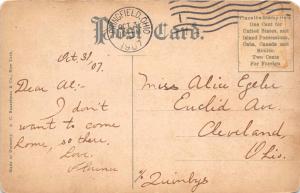 SPRINGFIELD, OHIO
1907
Post Card.
Place the Stamp Here
One Cent for
United States, and
Island Possessions,
Cuba, Canada and
Mexico.
Two Cents
For Foreign
Oct. 31
'07.
Dear Al:-
I don't
want to come
home, so there.
Love.
Miss Alice
Euclid Ave
Cleveland,
Ohio.
% Quinbys
Made in Germany